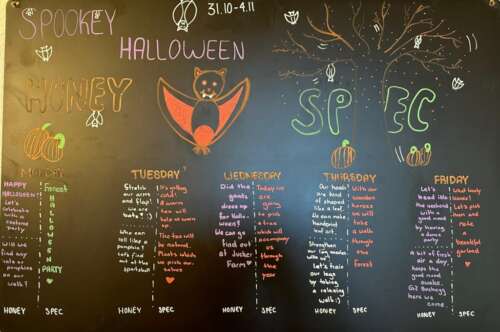 SPOOKEY
31.10-4.11
HALLOWEEN
HONEY
SPEC
MONDAY
HAPPY
HALLOWEEN!
Let's
celebrate
with a
party
Will we
find any
bats or
pumpkins on
our walk?
Forest
HALLOWEEN
PARTY
TUESDAY
Stretch
our arms
and flap!
We are
bats!
Who can
roll like a
pumpkin?
Let's find
out at the
It's getting
cold!
A warm
tea will
help us
warm up.
The tea will
be natural.
Plants which
we pick our-
selves
WEDNESDAY
Did the
goats
dress up
for Hallo-
ween?
We can go
find out
at Jucker
Farm
Today in
are
going to
pick a tree
which will
accompany
us
through the
year
THURSDAY
Our heads
are kind
of shaped
like a leaf.
We can make
wonderful
leaf art.
Strengthen
our leg muscles
with us!
Let's train
our legs
by taking
a relaxing
walk :)
With our
wooden
horses
we will
take a
walk
through
the
Forest
FRIDAY
Let's
head into
the weekend
with a
good mood
by having
a dance
party
A bit of
fresh air
a day
keeps the
good mood
awake.
here we
come.
What lovely
leaves!
Let's pick
them and
make a
beautiful
garland
HONEY SPEC HONEY SPEC HONEY SPEC HONEY SPEC HONEY SPEC